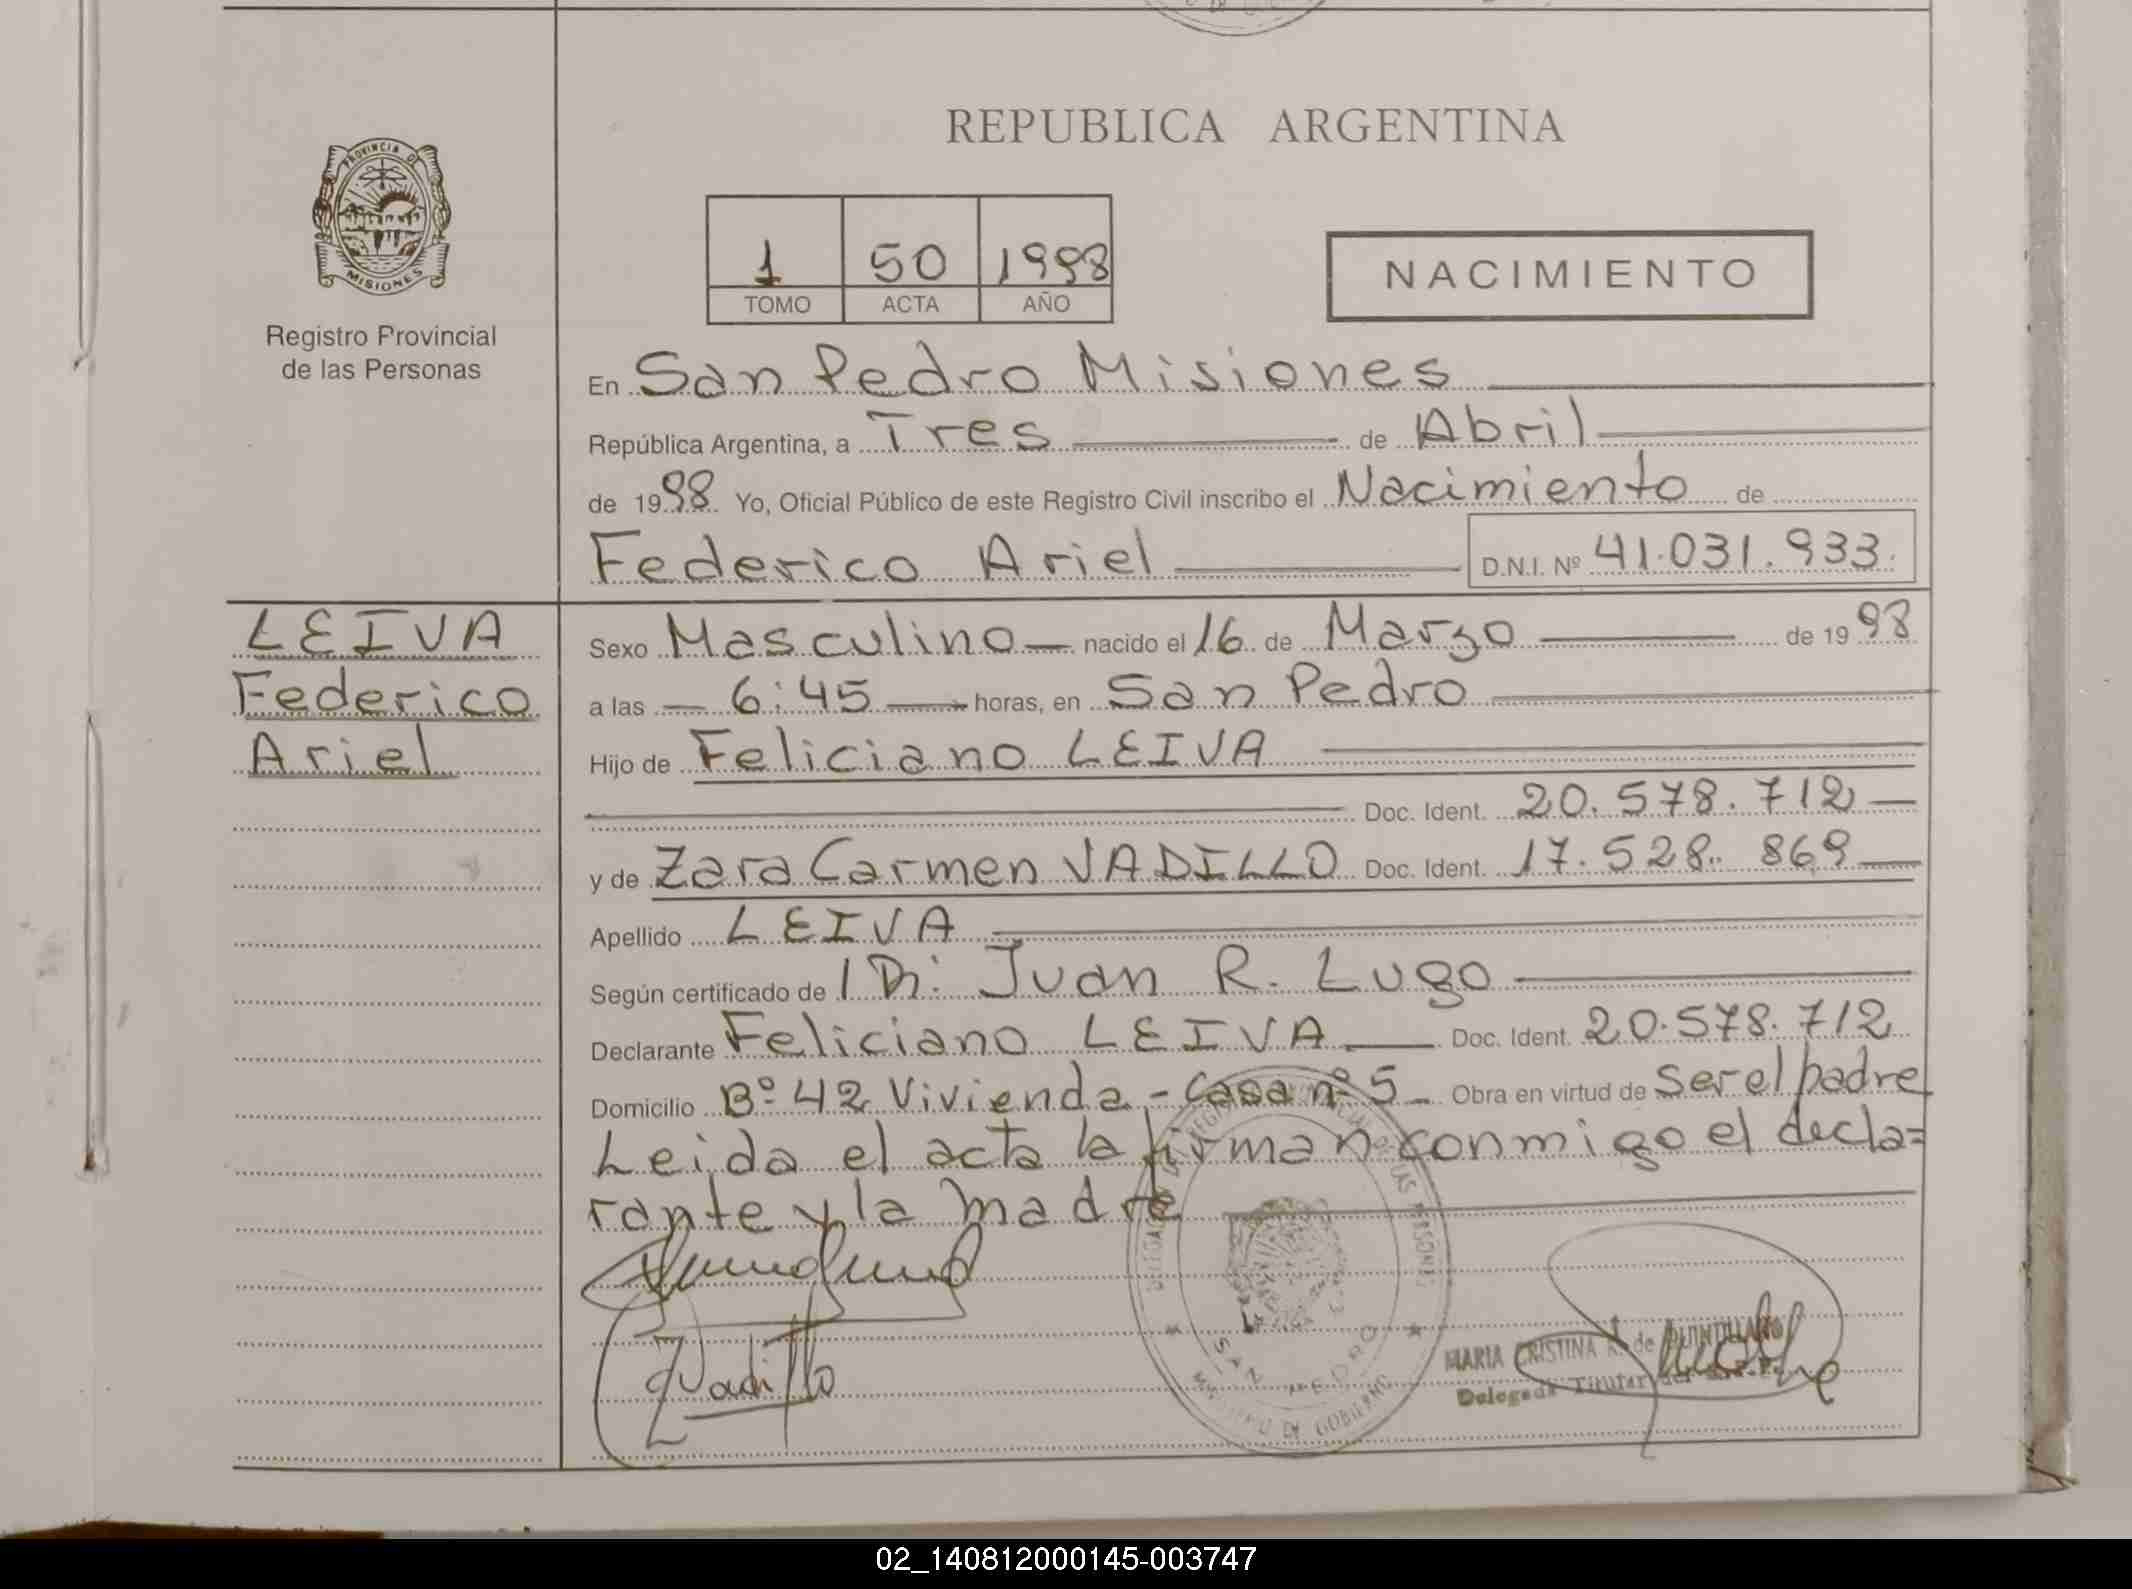 REPUBLICA ARGENTINA
PROVINCIA D
MISIONES
Registro Provincial
de las Personas
1 50 1998
TOMO ACTA AÑO
NACIMIENTO
En San Pedro Misiones
República Argentina, a Tres de Abril
de 1998 Yo, Oficial Público de este Registro Civil inscribo el Nacimiento de
Federico Ariel D.N.I. Nº 41.031.933.
LEIVA
Federico
Ariel
Sexo Masculino nacido el 16 de Marzo de 1998
a las 6:45 horas, en San Pedro
Hijo de Feliciano LEIVA
Doc. Ident. 20.578.712
y de Zara Carmen VADILLO Doc. Ident. 17.528.869
Apellido LEIVA
Según certificado de Dr: Juan R. Lugo
Declarante Feliciano LEIVA Doc. Ident. 20.578.712
Domicilio Bº 42 Vivienda - Casa nº 5 Obra en virtud de ser el padre
Leida el acta la firman conmigo el decla=
rante y la madre
ZVadillo
SAN PEDRO
MINISTERIO DE GOBIERNO
MARIA CRISTINA de
Delegada Titular del
02_140812000145-003747